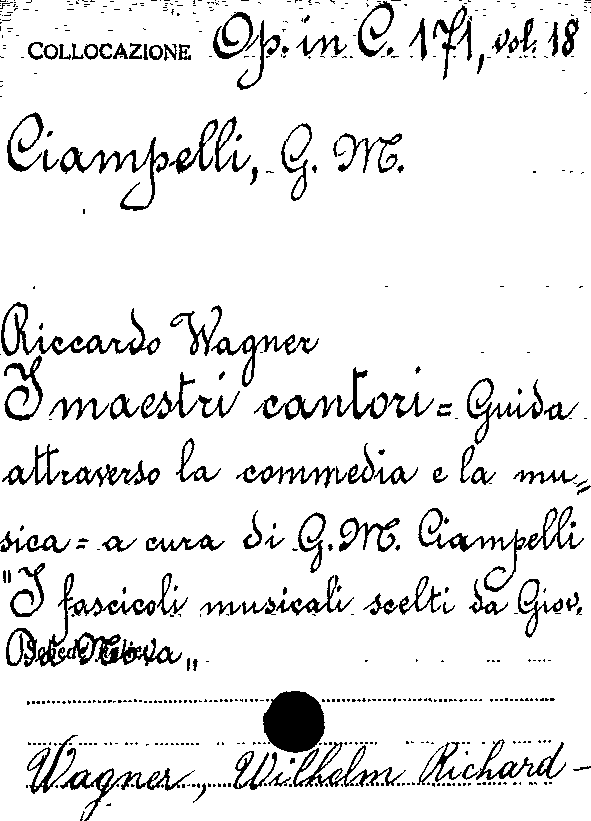 COLLOCAZIONE Op. in C. 171, vol. 18
Ciampelli, G. M.
Riccardo Wagner
I maestri cantori = Guida
attraverso la commedia e la mu=
sica = a cura di G. M. Ciampelli
"I fascicoli musicali scelti da Giov.
Da Nova„
Wagner, Wilhelm Richard -